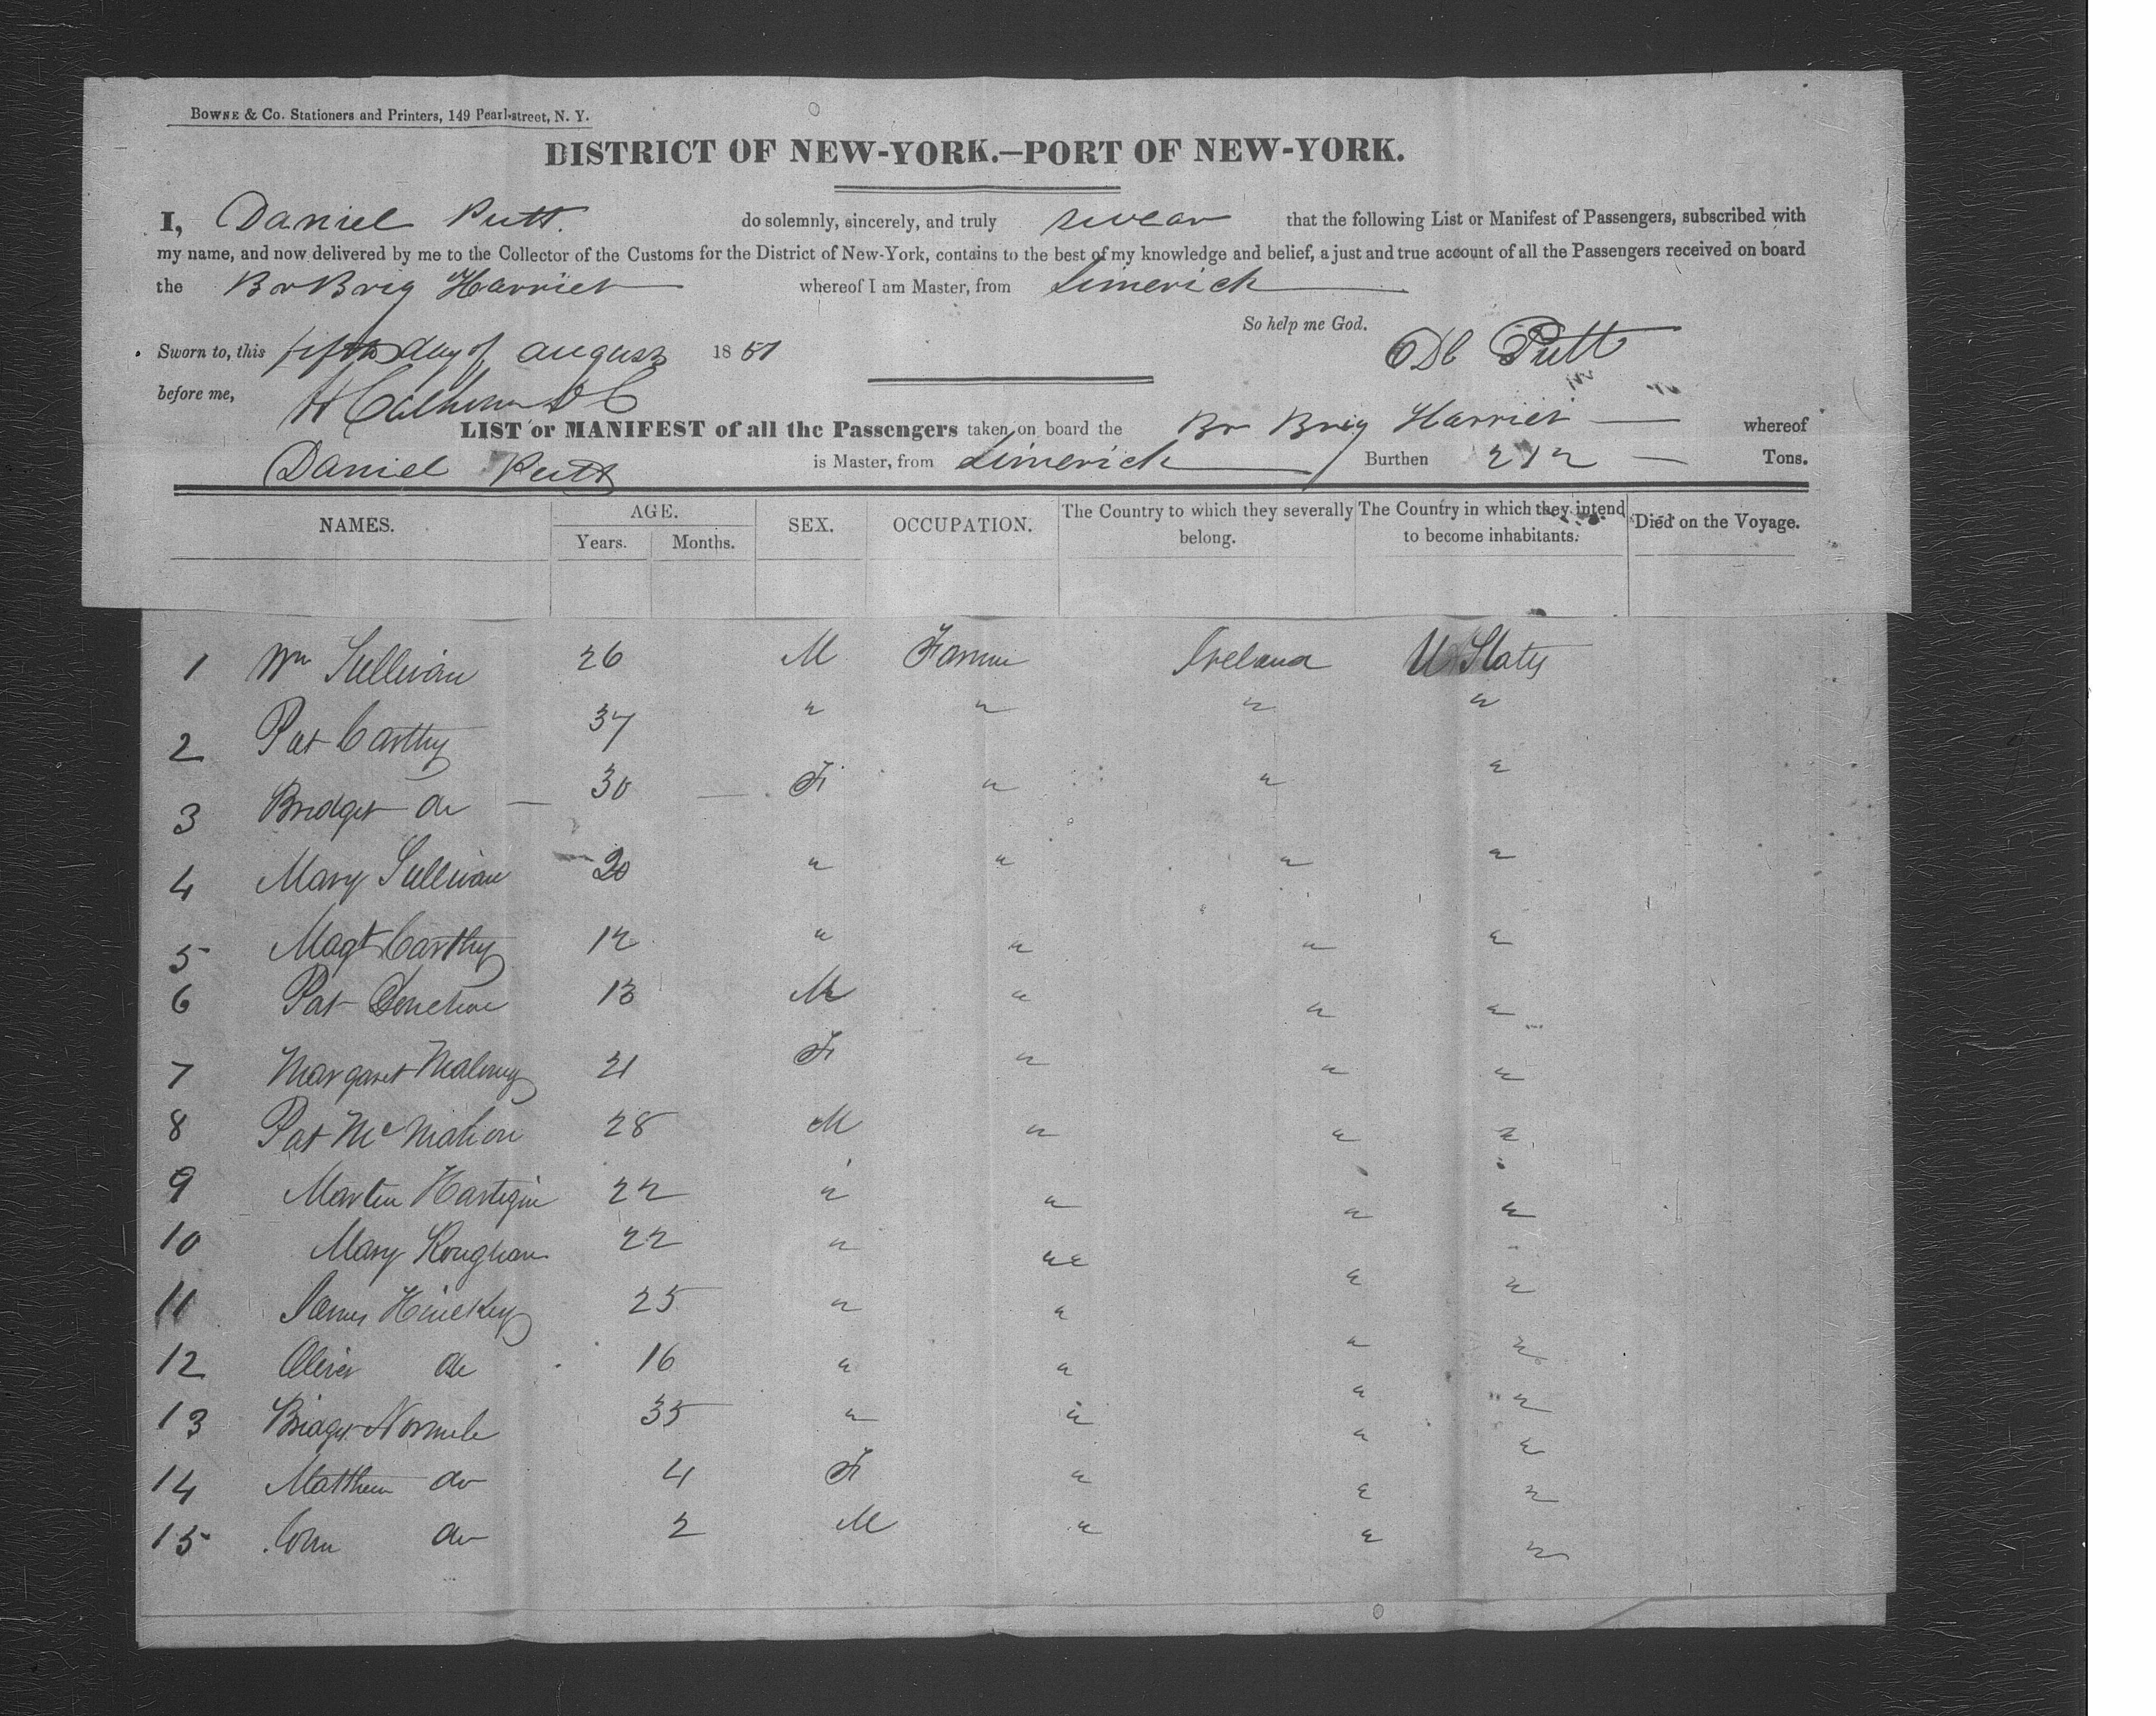 BOWNE & Co. Stationers and Printers, 149 Pearl-street, N. Y.
DISTRICT OF NEW-YORK.—PORT OF NEW-YORK.
I, Daniel Putt. do solemnly, sincerely, and truly swear that the following List or Manifest of Passengers, subscribed with
my name, and now delivered by me to the Collector of the Customs for the District of New-York, contains to the best of my knowledge and belief, a just and true account of all the Passengers received on board
the Br Brig Harriet whereof I am Master, from Limerick
So help me God.
Sworn to, this fifth day of august 1851 Putt
before me, H Calhoun D C
LIST or MANIFEST of all the Passengers taken on board the Br Brig Harriet whereof
Daniel Putt is Master, from Limerick Burthen 212 Tons.
NAMES. AGE. SEX. OCCUPATION. The Country to which they severally belong. The Country in which they intend to become inhabitants. Died on the Voyage.
Years. Months.
1 Wm Sullivan 26 M Farmer Ireland U States
2 Pat Carthy 37 " " " "
3 Bridget do — 30 — F " " "
4 Mary Sullivan 20 " " " "
5 Magt Carthy 12 " " " "
6 Pat Donehue 13 M " " "
7 Margaret Malony 21 F " " "
8 Pat McMahon 28 M " " "
9 Martin Hartigin 22 " " " "
10 Mary Roughan 22 " " " "
11 James Hinckey 25 " " " "
12 Oliver do 16 " " " "
13 Bridget Normele 35 " " " "
14 Matthew do 4 F " " "
15 do 2 M " " "